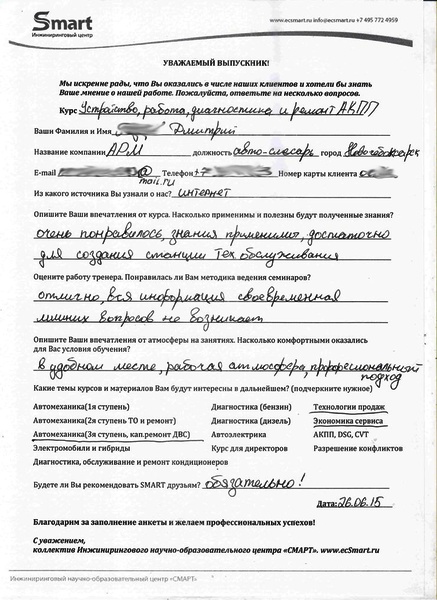 Smart
Инжиниринговый центр
www.ecsmart.ru info@ecsmart.ru +7 495 772 4959
УВАЖАЕМЫЙ ВЫПУСКНИК!
Мы искренне рады, что Вы оказались в числе наших клиентов и хотели бы знать
Ваше мнение о нашей работе. Пожалуйста, ответьте на несколько вопросов.
Курс Устройство, работа, диагностика и ремонт АКПП
Ваши Фамилия и Имя Дмитрий
Название компании АРМ должность авто-слесарь город Новочебоксарск
E-mail @mail.ru Телефон +7 Номер карты клиента
Из какого источника Вы узнали о нас? интернет
Опишите Ваши впечатления от курса. Насколько применимы и полезны будут полученные знания?
очень понравилось, знания применимы, достаточно
для создания станции тех обслуживания
Оцените работу тренера. Понравилась ли Вам методика ведения семинаров?
отлично, вся информация своевременная
лишних вопросов не возникает
Опишите Ваши впечатления от атмосферы на занятиях. Насколько комфортными оказались
для Вас условия обучения?
в удобном месте, рабочая атмосфера, профессиональный
подход
Какие темы курсов и материалов Вам будут интересны в дальнейшем? (подчеркните нужное)
Автомеханика(1я ступень) Диагностика (бензин) Технологии продаж
Автомеханика(2я ступень ТО и ремонт) Диагностика (дизель) Экономика сервиса
Автомеханика(3я ступень, кап.ремонт ДВС) Автоэлектрика АКПП, DSG, CVT
Электромобили и гибриды Курс для директоров Разрешение конфликтов
Диагностика, обслуживание и ремонт кондиционеров
Будете ли Вы рекомендовать SMART друзьям? обязательно!
Дата: 26.06.15
Благодарим за заполнение анкеты и желаем профессиональных успехов!
С уважением,
коллектив Инжинирингового научно-образовательного центра «СМАРТ». www.ecSmart.ru
Инжиниринговый научно-образовательный центр «СМАРТ»